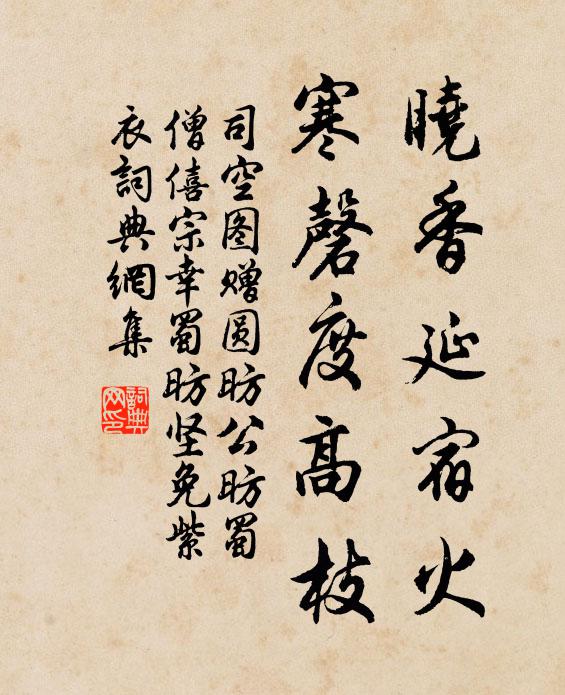 曉香延宿火
寒磬度高枝
司空图赠圆昉公昉蜀
僧僖宗幸蜀昉坚免紫
衣詞典網集
詞典
网印